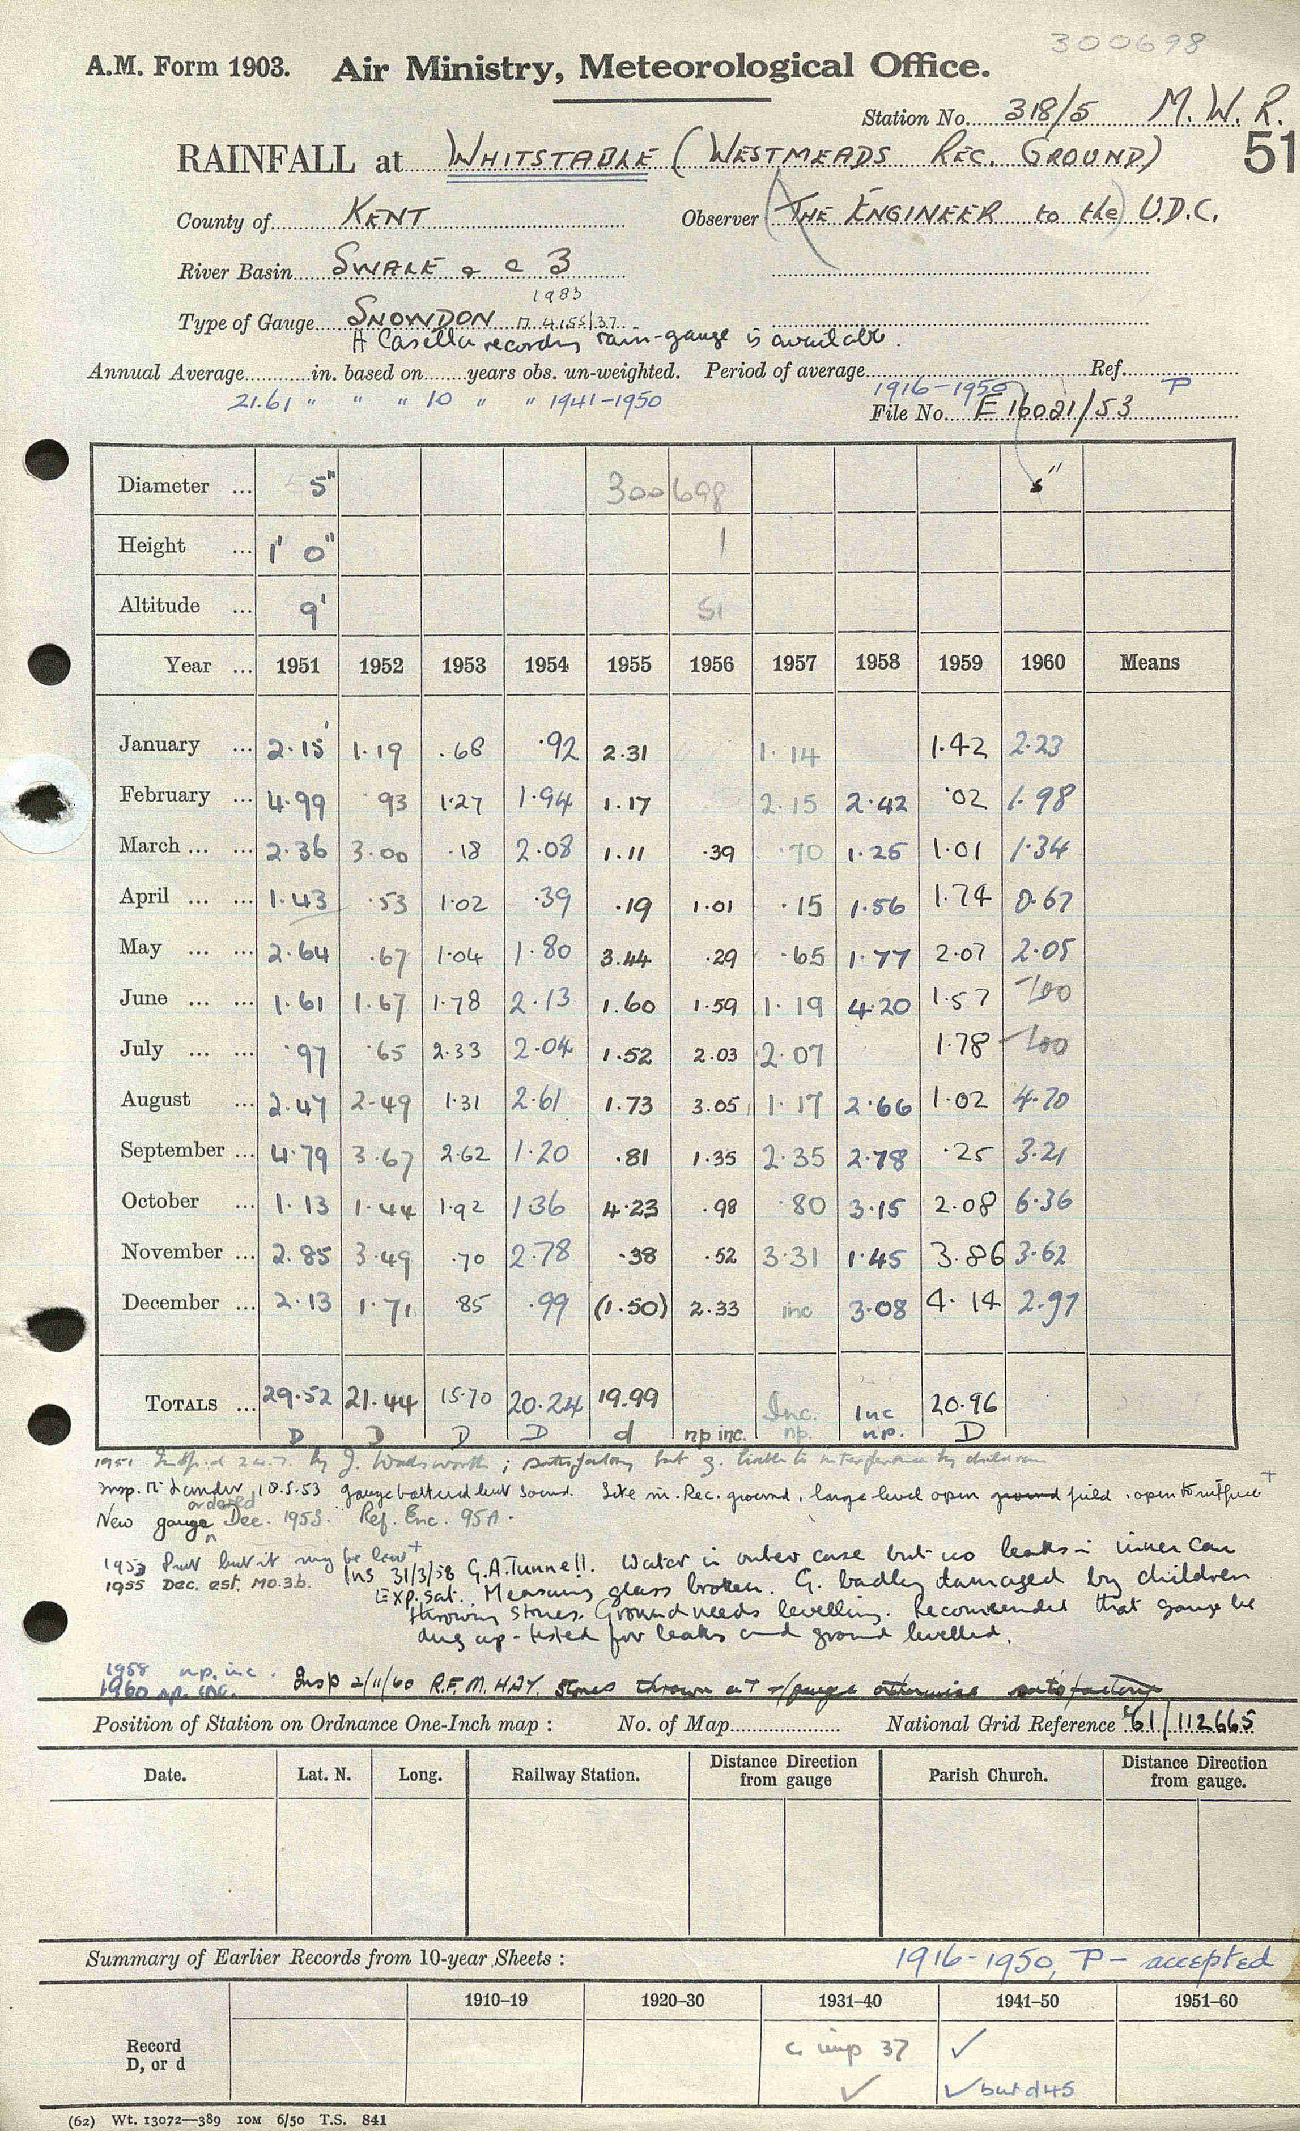 300698
A.M. Form 1903. Air Ministry, Meteorological Office.
Station No. 318/5 M.W.R.
RAINFALL at WHITSTABLE (WESTMEADS REC. GROUND) 51
County of KENT Observer (THE ENGINEER to the) U.D.C.
River Basin SWALE & C 3
1983
Type of Gauge SNOWDON 4155/37
A Casella recording rain-gauge is available.
Annual Average in. based on years obs. un-weighted. Period of average Ref.
21.61 " " " 10 " " 1941-1950 1916-1950 P
File No. E 16021/53
Diameter ... 5" 300698 5"
Height ... 1' 0" 1
Altitude ... 9' 51
Year ... 1951 1952 1953 1954 1955 1956 1957 1958 1959 1960 Means
January ... 2.15 1.19 .68 .92 2.31 1.14 1.42 2.23
February ... 4.99 .93 1.27 1.94 1.17 2.15 2.42 .02 1.98
March ... ... 2.36 3.00 .18 2.08 1.11 .39 .70 1.25 1.01 1.34
April ... ... 1.43 .53 1.02 .39 .19 1.01 .15 1.56 1.74 0.67
May ... ... 2.64 .67 1.04 1.80 3.44 .29 .65 1.77 2.07 2.05
June ... ... 1.61 1.67 1.78 2.13 1.60 1.59 1.19 4.20 1.57 -100
July ... ... .97 .65 2.33 2.04 1.52 2.03 2.07 1.78 -100
August ... 2.47 2.49 1.31 2.61 1.73 3.05 1.17 2.66 1.02 4.70
September ... 4.79 3.67 2.62 1.20 .81 1.35 2.35 2.78 .25 3.21
October ... 1.13 1.44 1.92 1.36 4.23 .98 .80 3.15 2.08 6.36
November ... 2.85 3.49 .70 2.78 .38 .52 3.31 1.45 3.86 3.62
December ... 2.13 1.71 .85 .99 (1.50) 2.33 inc 3.08 4.14 2.97
TOTALS ... 29.52 21.44 15.70 20.24 19.99 Inc. Inc 20.96
D D D D d np inc. np. np. D
1951 Insp.d by J. Wadsworth; satisfactory but g. liable to interference by children
Insp. 18.5.53 gauge battered but sound. Site in Rec. ground, large level open ground field, open to
New gauge ordered Dec. 1953. Ref. Enc. 95A.
1953 but it may be low
1955 Dec. est. MO.3b.
Ins 31/3/58 G.A.Tunnell. Water in outer case but no leaks in inner can
Exp. sat. Measuring glass broken. G. badly damaged by children
throwing stones. Ground needs levelling. Recommended that gauge be
dug up - tested for leaks and ground levelled.
1958 np. inc.
1960 np. inc. Insp 2/11/60 R.F.M. HAY. Stones thrown at gauge otherwise satisfactory
Position of Station on Ordnance One-Inch map : No. of Map National Grid Reference 61/112665
Date. Lat. N. Long. Railway Station. Distance Direction from gauge Parish Church. Distance Direction from gauge.
Summary of Earlier Records from 10-year Sheets : 1916-1950, P - accepted
1910-19 1920-30 1931-40 1941-50 1951-60
Record D, or d
c. imp 37 ✓
✓ ✓ but d 45
(62) Wt. 13072—389 10M 6/50 T.S. 841